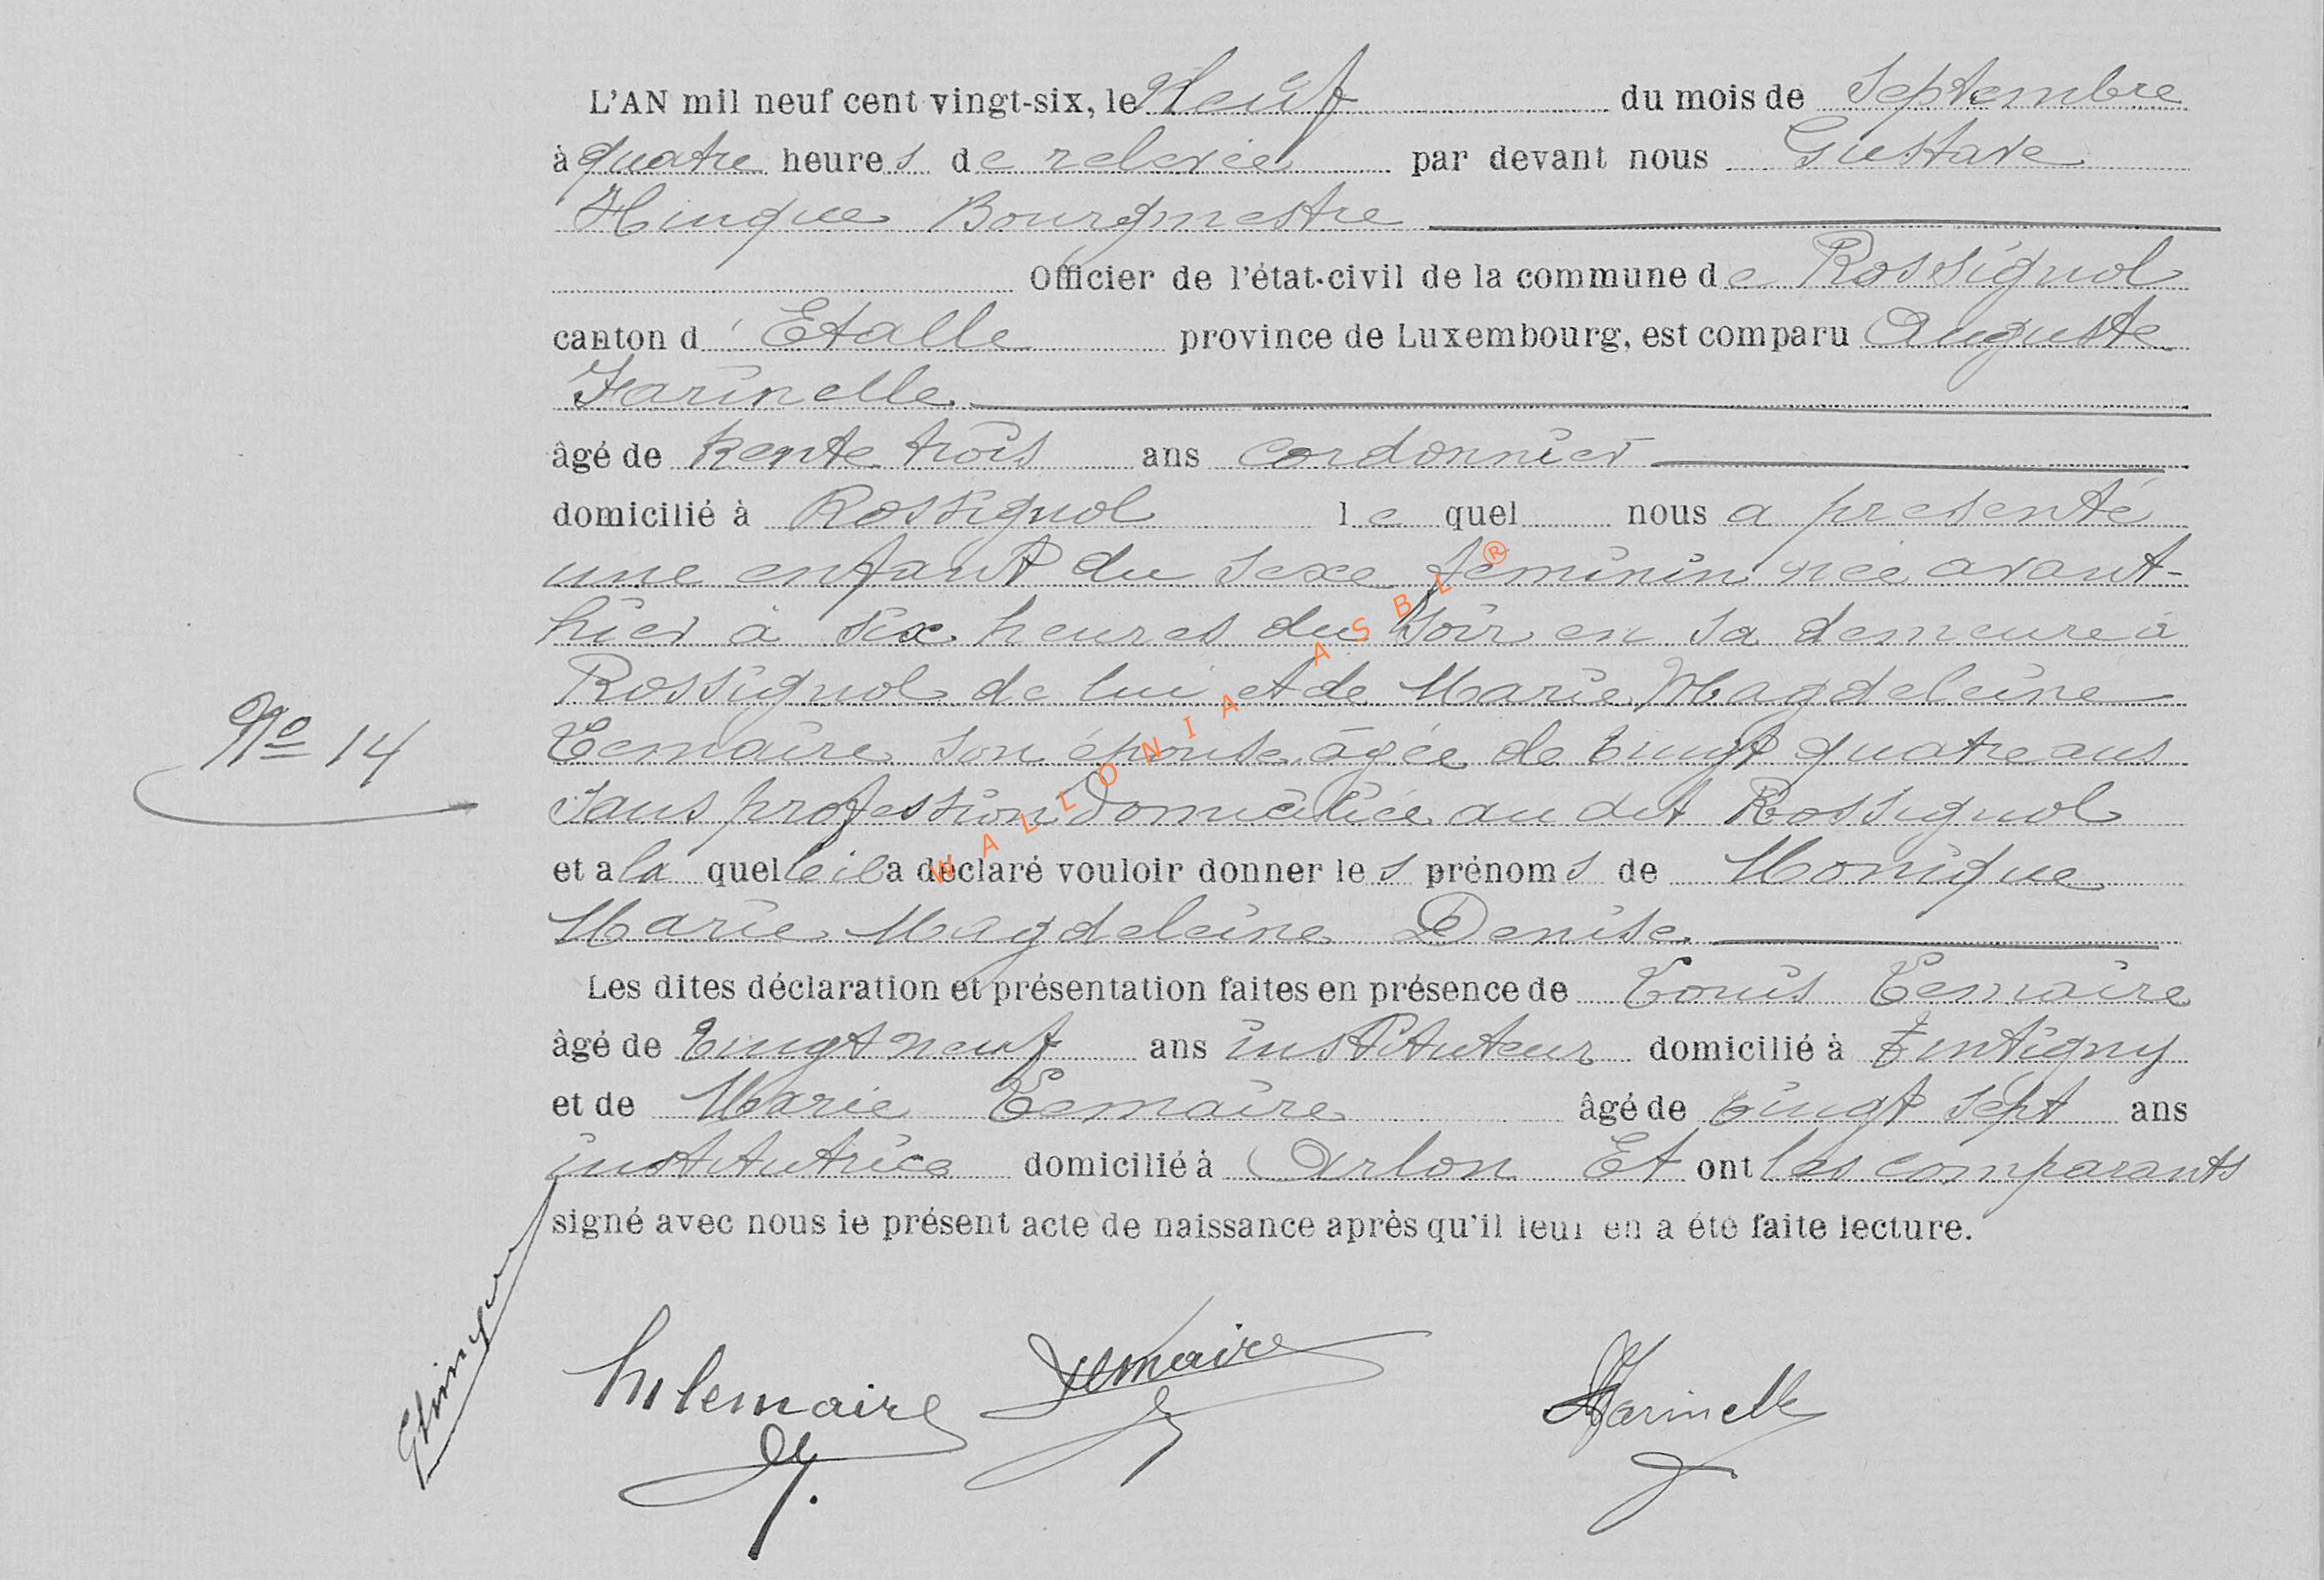 L'AN mil neuf cent vingt-six, le Neuf du mois de Septembre
à quatre heures de relevée par devant nous Gustave
Hinque Bourgmestre
Officier de l'état-civil de la commune de Rossignol
canton d'Etalle province de Luxembourg, est comparu Auguste
Farinelle
âgé de trente trois ans cordonnier
domicilié à Rossignol lequel nous a presenté
une enfant du sexe féminin née avant-
hier à six heures du soir en sa demeure à
Rossignol de lui et de Marie Magdeleine
Nº 14
Lemaire son épouse âgée de vingt quatre ans
sans profession domiciliée au dit Rossignol
et a la quelle il a déclaré vouloir donner les prénoms de Monique
Marie Magdeleine Denise
Les dites déclaration et présentation faites en présence de Louis Lemaire
âgé de vingt neuf ans instituteur domicilié à Tintigny
et de Marie Lemaire âgé de vingt sept ans
institutrice domicilié à Arlon Et ont les comparants
signé avec nous le présent acte de naissance après qu'il leur en a été faite lecture.
GHinque
M lemaire
Lemaire
AFarinelle
WALLONIA ASBL ®